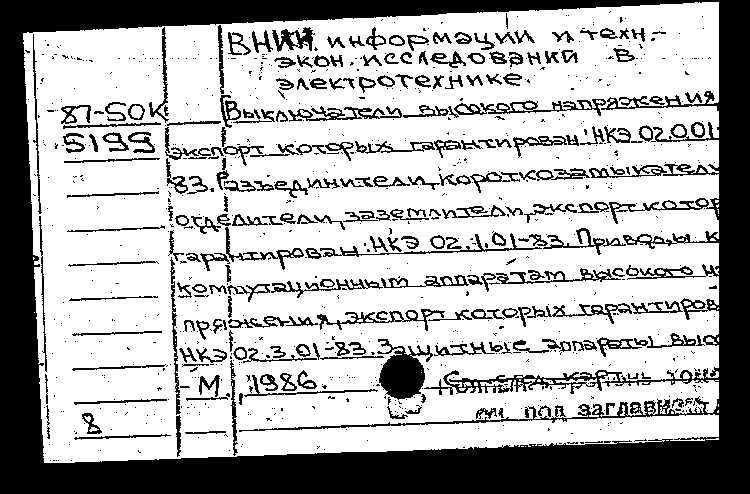 ВНИИ информации и техн.-
экон. исследований в
электротехнике.
87-50К Выключатели высокого напряжения,
5199 экспорт которых гарантирован: НКЭ 02.0.01-
83. Разъединители, короткозамыкатели
отделители, заземлители, экспорт котор
гарантирован: НКЭ 02.1.01-83. Приводы к
коммутационным аппаратам высокого на
пряжения, экспорт которых гарантиров
НКЭ 02.3.01-83. Защитные аппараты высо
- М., 1986.
8 см. под заглавием